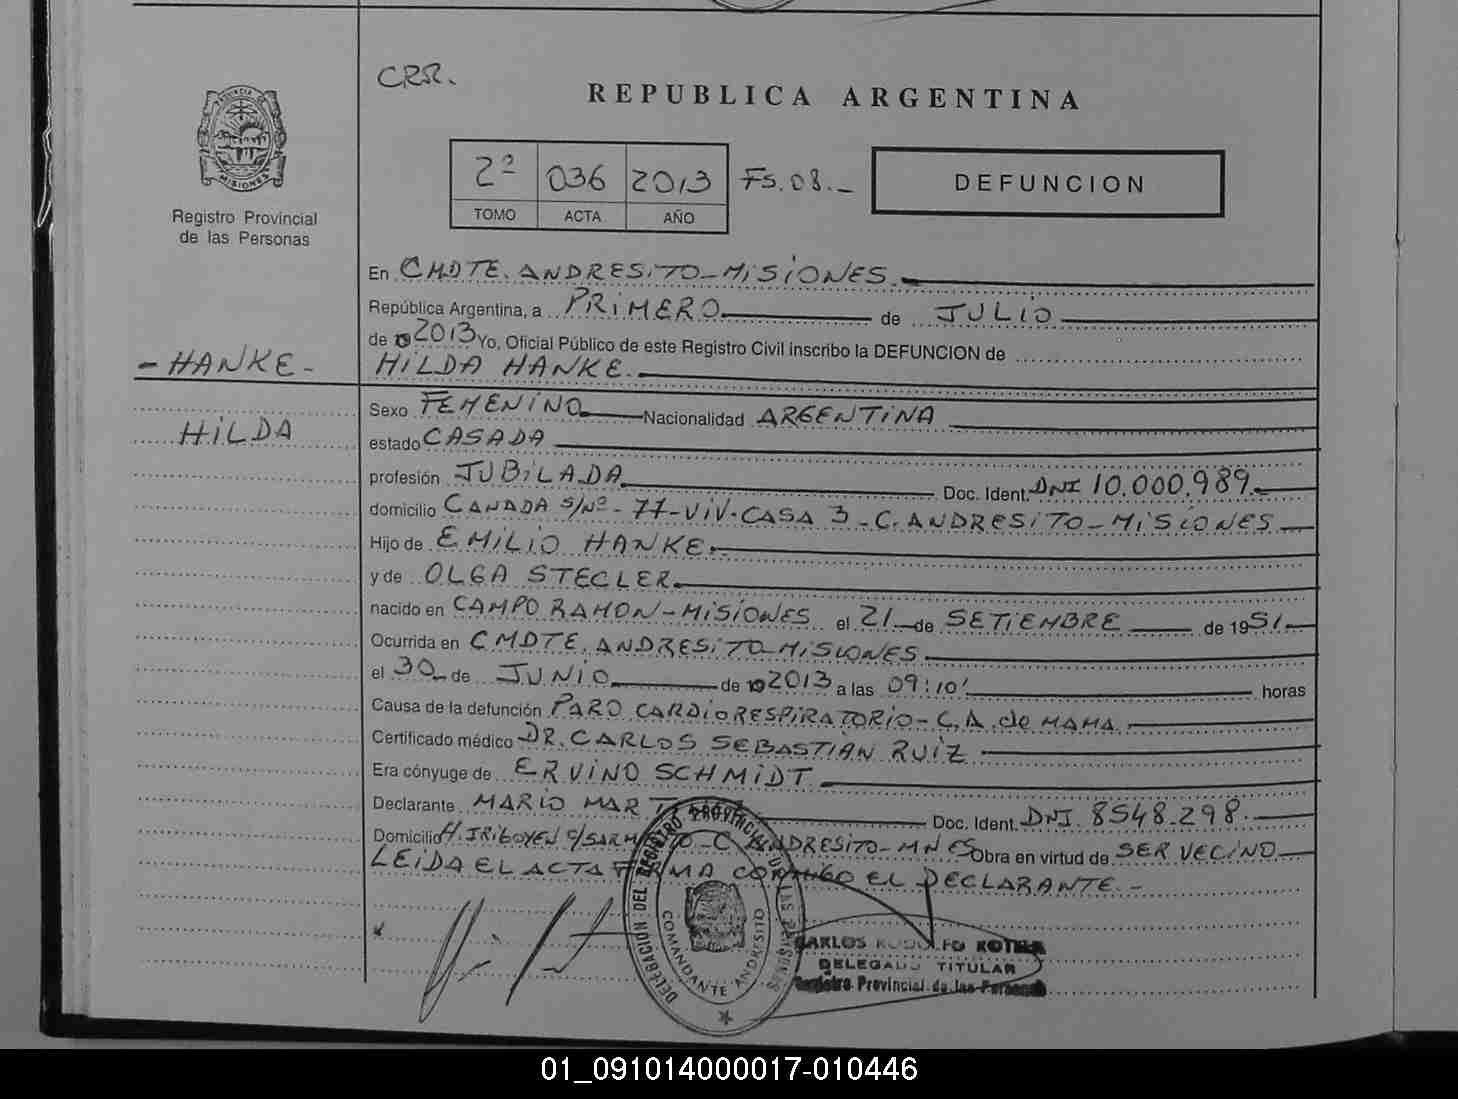 CRR.
REPUBLICA ARGENTINA
PROVINCIA DE
MISIONES
Registro Provincial
de las Personas
2º 036 2013 FS.08.-
TOMO ACTA AÑO
DEFUNCION
En CMDTE. ANDRESITO-MISIONES.
República Argentina, a PRIMERO de JULIO
de 2013 Yo, Oficial Público de este Registro Civil inscribo la DEFUNCION de
- HANKE - HILDA HANKE.
Sexo FEMENINO Nacionalidad ARGENTINA
HILDA estado CASADA
profesión JUBILADA Doc. Ident. DNI 10.000.989.-
domicilio CANADA S/Nº - 77-VIV-CASA 3 - C. ANDRESITO-MISIONES
Hijo de EMILIO HANKE.
y de OLGA STECLER.
nacido en CAMPO RAMON-MISIONES el 21 de SETIEMBRE de 1951.-
Ocurrida en CMDTE. ANDRESITO-MISIONES.
el 30 de JUNIO de 2013 a las 09:10' horas
Causa de la defunción PARO CARDIORESPIRATORIO-C.A. de MAMA.
Certificado médico DR. CARLOS SEBASTIAN RUIZ
Era cónyuge de ERVINO SCHMIDT
Declarante MARIO Doc. Ident. DNI 8548.298.
Domicilio H. IRIGOYEN C/SARMIENTO-C ANDRESITO-MNES Obra en virtud de SER VECINO
LEIDA EL ACTA FIRMA CONMIGO EL DECLARANTE.-
DELEGACION DEL REGISTRO PROVINCIAL DE LAS PERSONAS
COMANDANTE ANDRESITO
CARLOS RODOLFO
DELEGADO TITULAR
Registro Provincial de las Personas
01_091014000017-010446